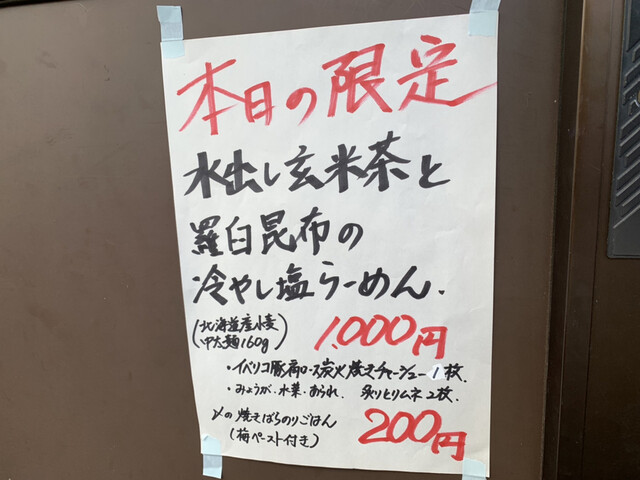 本日の限定
水出し玄米茶と
羅臼昆布の
冷やし塩らーめん.
(北海道産小麦
中太麺160g) 1,000円
・イベリコ豚肩ロース炭火焼きチャーシュー1枚.
・みょうが.水菜.あられ. 炙りとりムネ2枚.
〆の焼きばらのりごはん
(梅ペースト付き) 200円